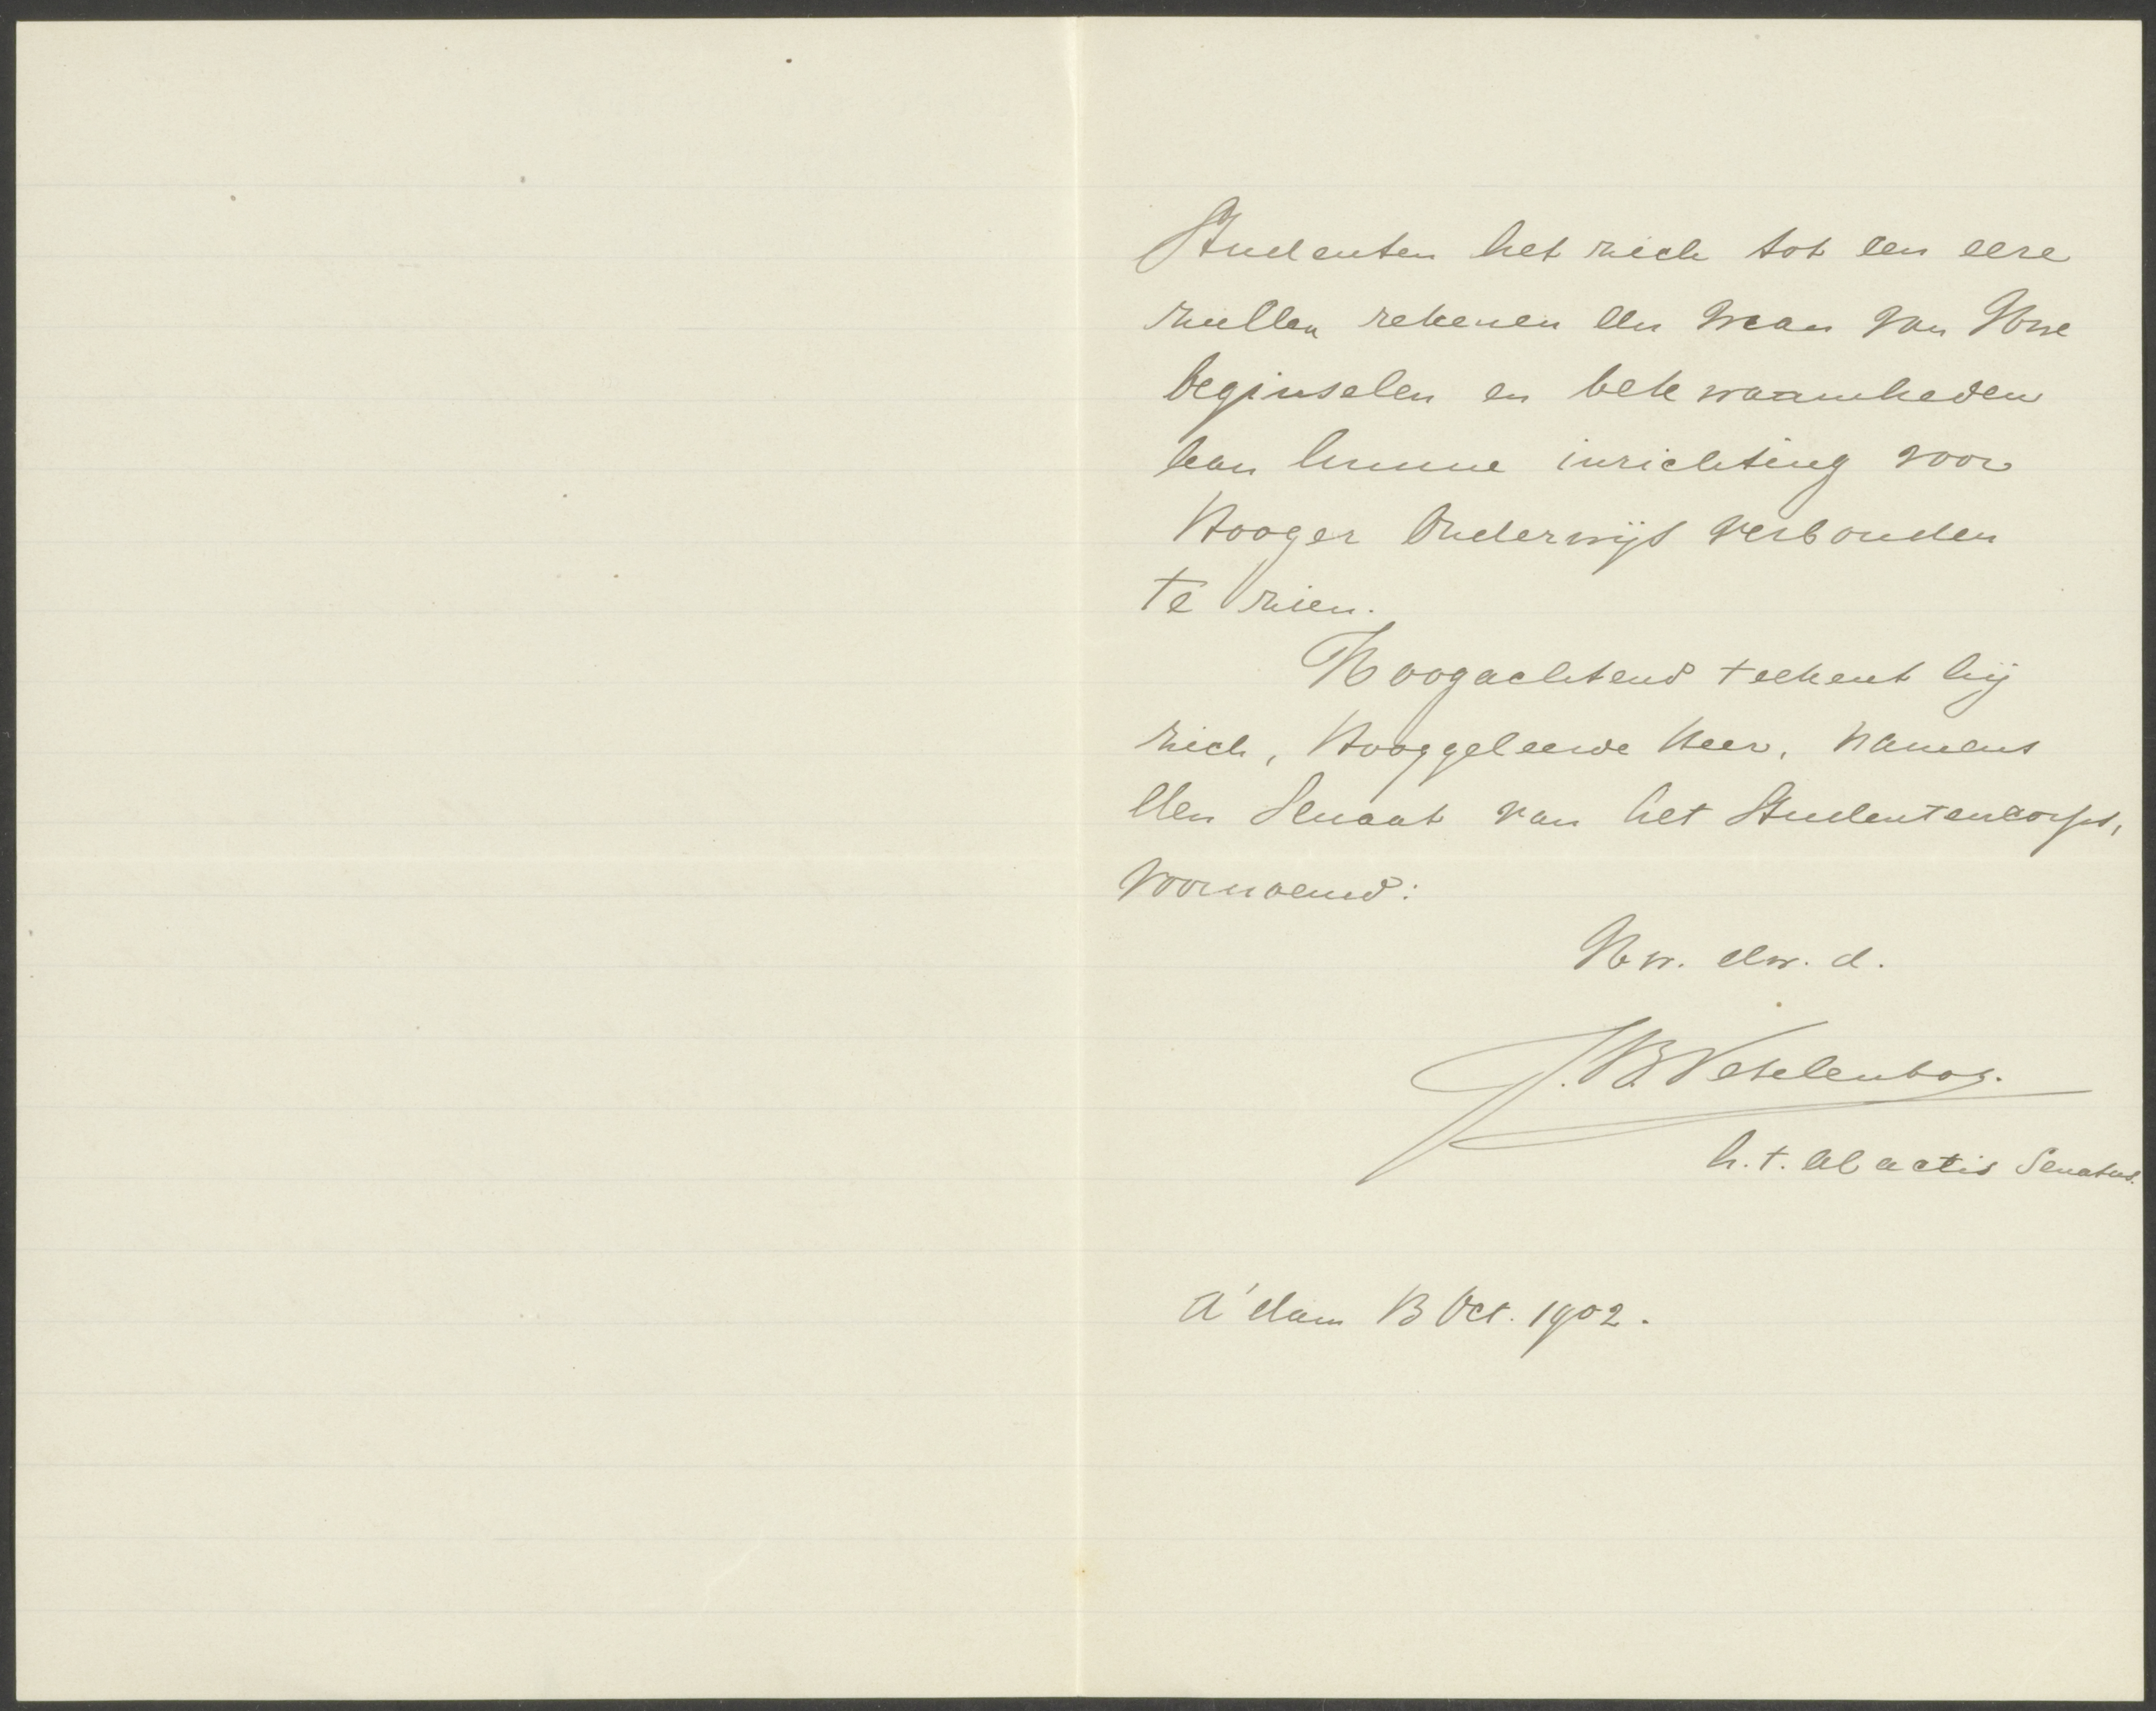 Studenten het zich tot een eere
zullen rekenen een man van Uwe
beginselen en bekwaamheden
aan hunne inrichting voor
Hooger Onderwijs verbonden
te zien.
Hoogachtend teekent hij
zich, Hooggeleerde Heer, namens
den Senaat van het Studentencorps,
voornoemd:
Uw. dw. d.
h.t. ab actis Senatus.
A'dam 13 Oct. 1902.